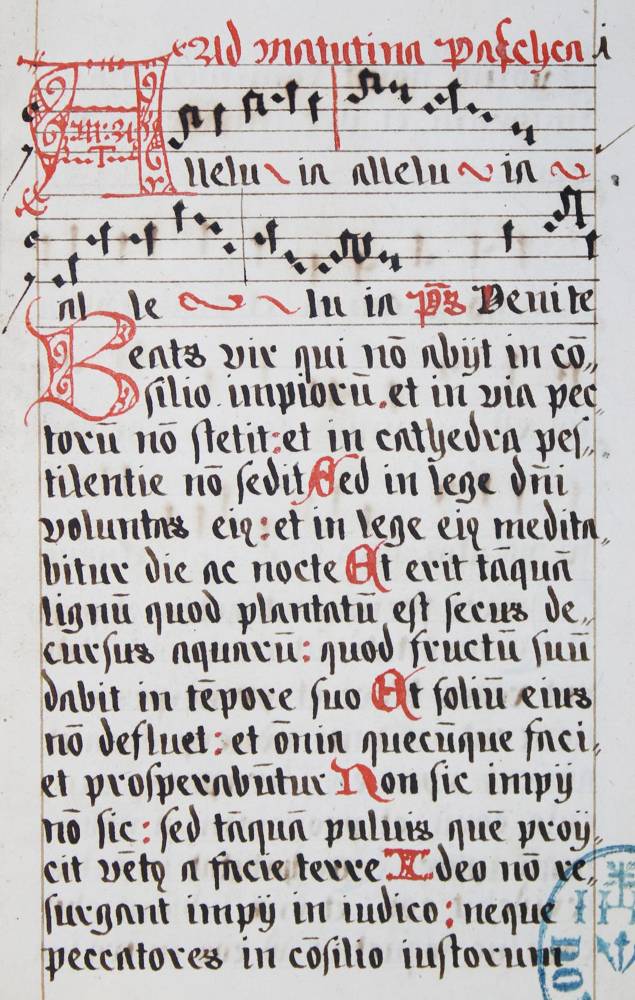 Ad matutina pascħca i
Alleluia alleluia
al le lu ia p̄s Venite
Beatꝰ vir qui nō abijt in cō„
silio impiorū. et in via pec
torū nō stetit: et in cathedra pes„
tilentie nō sedit Sed in lege dn̄i
voluntas eiꝰ: et in lege eiꝰ medita„
bitur die ac nocte Et erit tāquā
lignū quod plantatū est secus de„
cursus aquarū: quod fructū suū
dabit in tēpore suo Et foliū eius
nō defluet: et ōnia quecūque faci„
et prosperabūtur Non sic impij
nō sic: sed tāquā puluis quē proij„
cit vētꝰ a facie terre Ideo nō re„
surgant impij in iudico: neque
peccatores in cōsilio iustorum